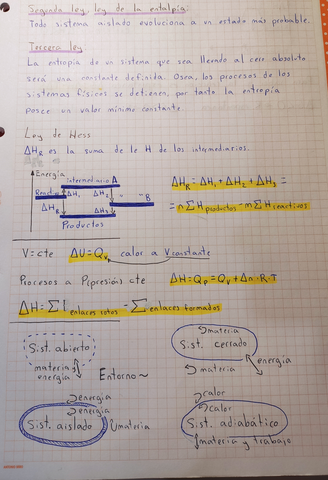 Segunda ley, ley de la entalpía:
Todo sistema aislado evoluciona a un estado más probable.
Tercera ley.
La entropía de un sistema que sea llevado al cero absoluto
será una constante definida. Osea, los procesos de los
sistemas físicos se detienen, por tanto la entropía
posee un valor mínimo constante
Ley de Hess
ΔHR es la suma de le H de los intermediarios.
Energía
intermediario A
React
ΔH1 ΔH2
B
ΔHR
ΔH3
Productos
ΔHR = ΔH1 + ΔH2 + ΔH3 =
= nΣHproductos - mΣHreactivos
V=cte ΔU=Qv, calor a V constante
Procesos a P(presión) cte ΔH=Qp=Qv+Δn·R·T
ΔH=Σ enlaces rotos - Σ enlaces formados
Sist. abierto
materia y
energía
Entorno~
materia
Sist. cerrado
materia
energía
energía
energía
Sist. aislado
materia
calor
calor
Sist. adiabático
materia y trabajo